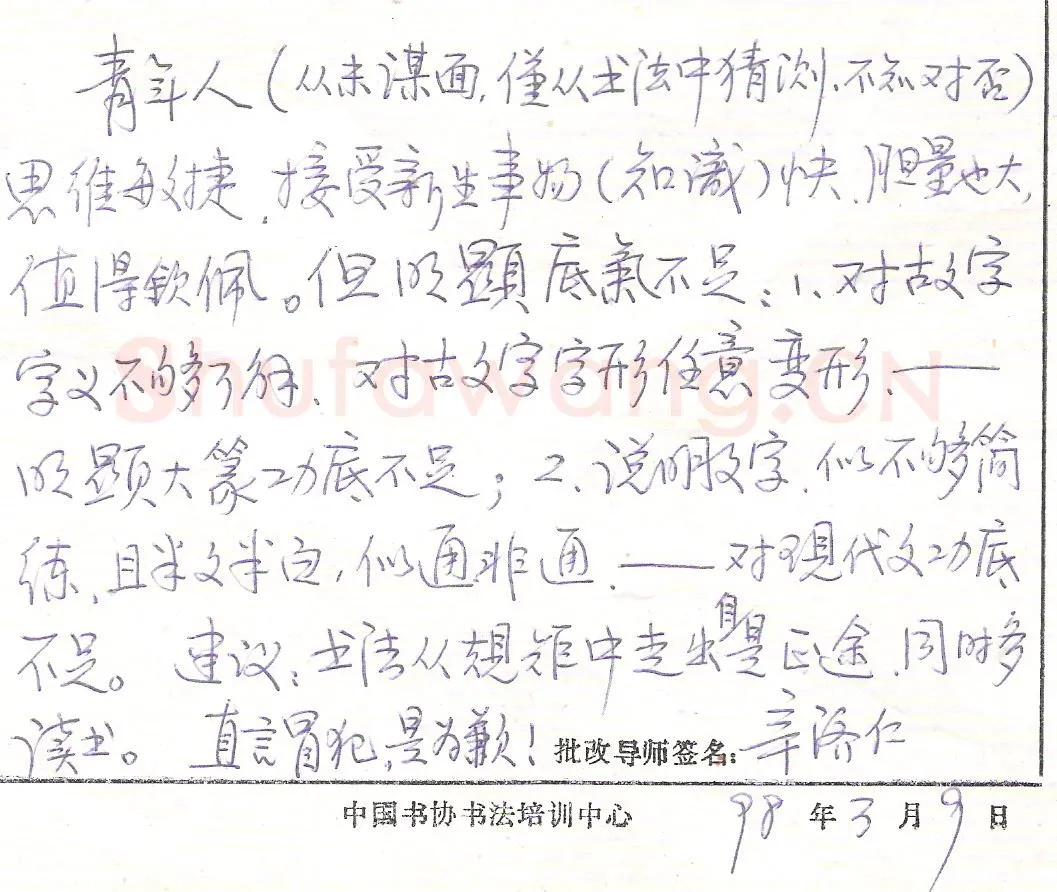 青年人(从未谋面,僅从书法中猜测,不知对否)
思维敏捷,接受新生事物(知識)快,胆量也大,
值得欽佩。但明顯底氣不足:1、对古文字
字义不够了解、对古文字字形任意变形、——
明顯大篆功底不足;2、说明文字,似不够简
练,且半文半白,似通非通,——对現代文功底
不足。建议:书法从規矩中走出自是正途,同时多
读书。直言冒犯,是为歉!批改导师签名:辛济仁
中国书协书法培训中心 98年3月9日
Shufawang.CN